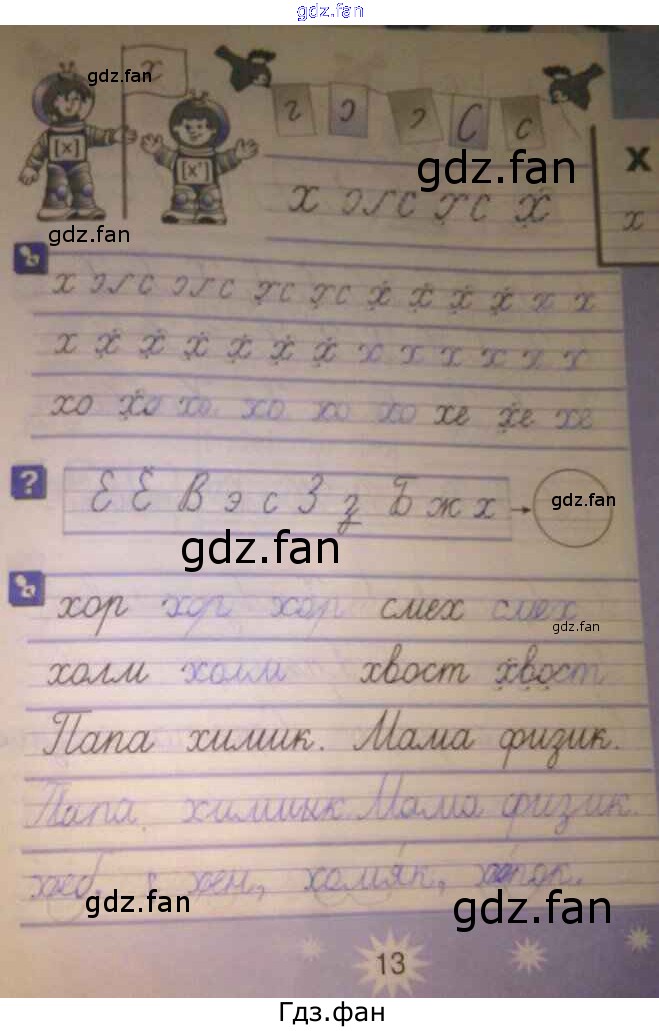 gdz.fan
gdz.fan
х
[х]
[х']
г э э С с
gdz.fan
х
х
gdz.fan
х эгс хс х
х эгс эгс хс хс х х х х х х
х х х х х х х х х х х х х
хо хо хо хо хо хо хе хе хе
?
Е Ё В э с З з Б ж х
gdz.fan
gdz.fan
хор хор хор смех смех
gdz.fan
холм холм хвост хвост
Папа химик. Мама физик.
Папа химик. Мама физик.
хомяк,
gdz.fan
gdz.fan
13
Гдз.фан